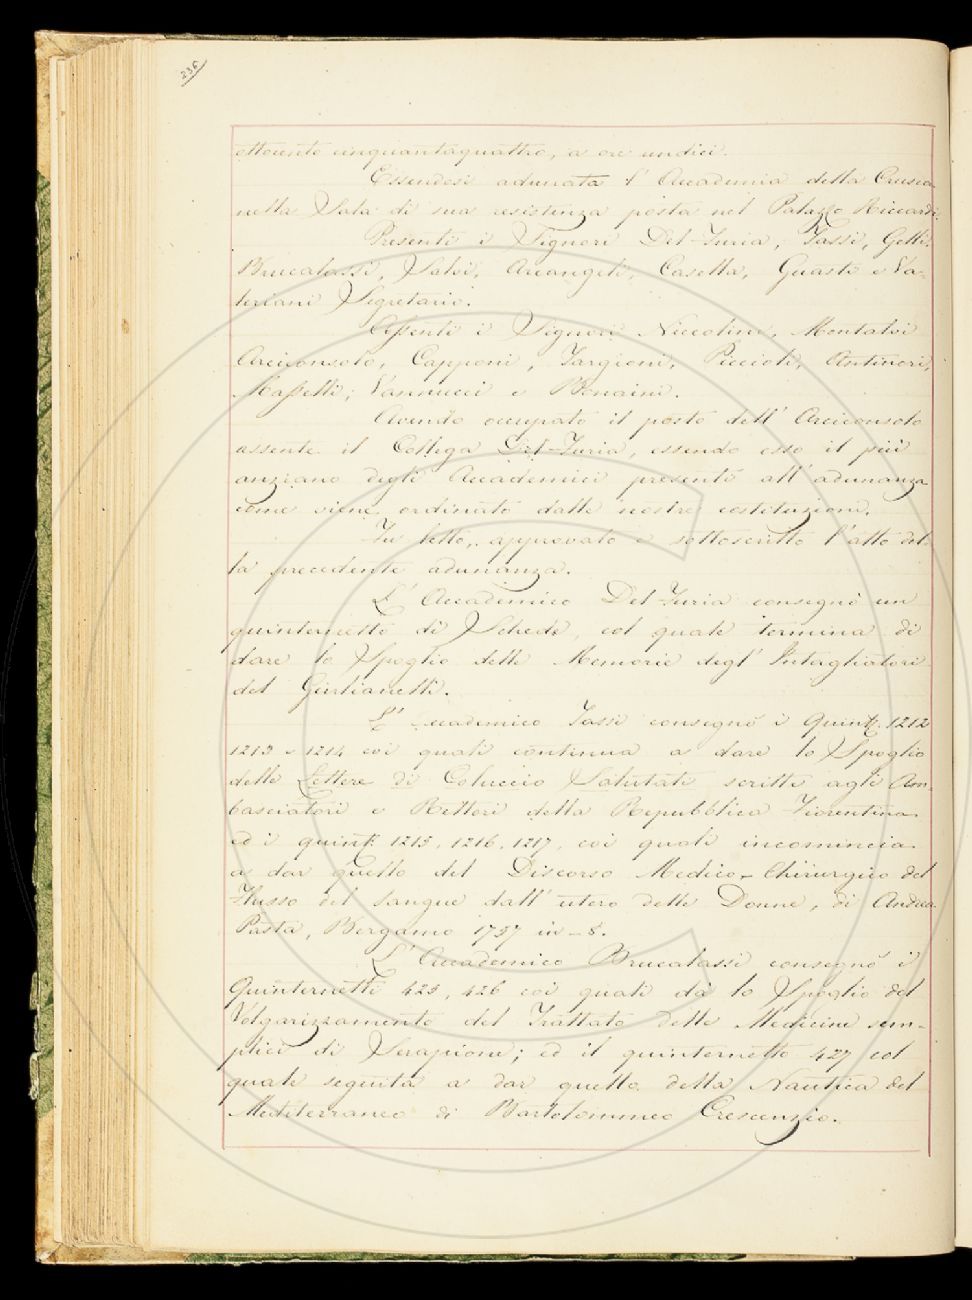 236
ottocento cinquantaquattro, a ore undici.
Essendosi adunata l'Accademia della Crusca
nella Sala di sua residenza posta nel Palazzo Riccardi.
Presenti i Signori Del-Furia, Tassi, Gelli,
Brucalassi, Salvi, Arcangeli, Casella, Guasti e Va-
leriani Segretario.
Assenti i Signori Niccolini, Montalvi
Arciconsolo, Capponi, Targioni, Piccioli, Antinori,
Masselli, Vannucci e Bonaini.
Avendo occupato il posto dell'Arciconsolo
assente il Collega Del-Furia, essendo esso il più
anziano degli Accademici presenti all'adunanza
come viene ordinato dalle nostre costituzioni.
Fu letto, approvato e sottoscritto l'atto del-
la precedente adunanza.
L'Accademico Del-Furia consegnò un
quinternetto di Schede, col quale termina di
dare lo Spoglio delle Memorie degl'Intagliatori
del Giulianelli.
L'Accademico Tassi consegnò i Quintti. 1212
1213 e 1214 coi quali continua a dare lo Spoglio
delle Lettere di Coluccio Salutati scritte agli Am-
basciatori e Rettori della Repubblica Fiorentina
ed i quintti. 1215, 1216, 1217, coi quali incomincia
a dar quello del Discorso Medico-Chirurgico del
Flusso del sangue dall'utero delle Donne, di Andrea
Pasta, Bergamo 1757 in-8.
L'Accademico Brucalassi consegnò i
Quinternetti 425, 426 coi quali dà lo Spoglio del
Volgarizzamento del Trattato delle Medicine sem-
plici di Serapione; ed il quinternetto 427 col
quale seguita a dar quello della Nautica del
Mediterraneo di Bartolommeo Crescenzio.